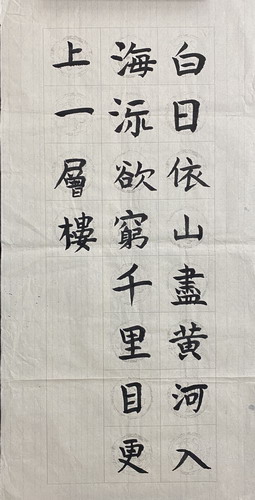 白日依山盡黄河入
海流欲窮千里目更
上一層樓